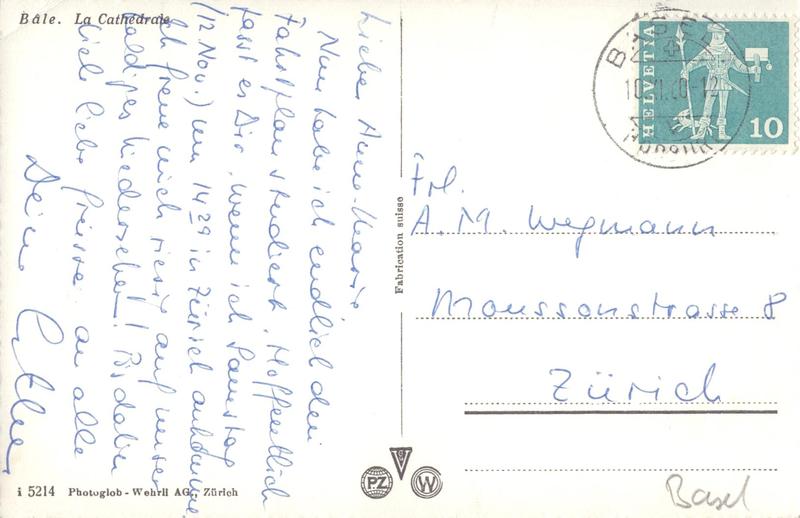 Bâle. La Cathédrale
Liebes Anne-Marie
Nun habe ich endlich den
Fahrplan studiert. Hoffentlich
passt es Dir, wenn ich Samstag
(12 Nov.) um 14 29 in Zürich ankomme.
Ich freue mich riesig auf unser
baldiges Wiedersehen! Bis dahin
viele liebe Grüsse an alle
Deine
i 5214 Photoglob - Wehrli AG., Zürich
Fabrication suisse
PZ
W
BASEL
10.XI.60-12
HELVETIA
10
Frl.
A. M. Wegmann
Moussonstrasse 8
Zürich
Basel